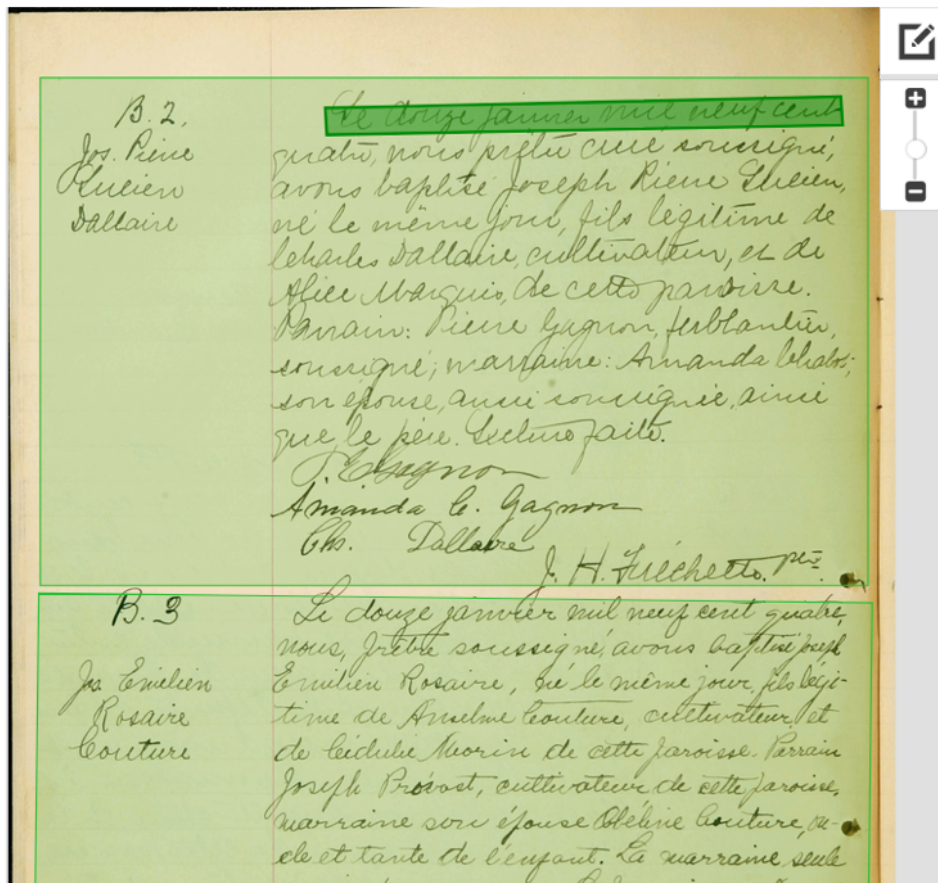 B. 2.
Jos. Pierre
Lucien
Dallaire
Le douze janvier mil neuf cent
quatre, nous prêtre curé soussigné,
avons baptisé Joseph Pierre Lucien,
né le même jour, fils légitime de
Charles Dallaire, cultivateur, et de
Alice Marquis, de cette paroisse.
Parrain: Pierre Gagnon, ferblantier,
soussigné; marraine: Amanda Chabot,
son épouse, aussi soussignée, ainsi
que le père. Lecture faite.
P. E. Gagnon
Amanda C. Gagnon
Chs. Dallaire
J. H. Fréchette. ptre.
B. 3
Jos Emilien
Rosaire
Couture
Le douze janvier mil neuf cent quatre,
nous, prêtre soussigné, avons baptisé Joseph
Emilien Rosaire, né le même jour, fils légi-
time de Anselme Couture, cultivateur, et
de Cédulie Morin de cette paroisse. Parrain
Joseph Provost, cultivateur de cette paroisse,
marraine son épouse Obéline Couture, on-
cle et tante de l'enfant. La marraine seule